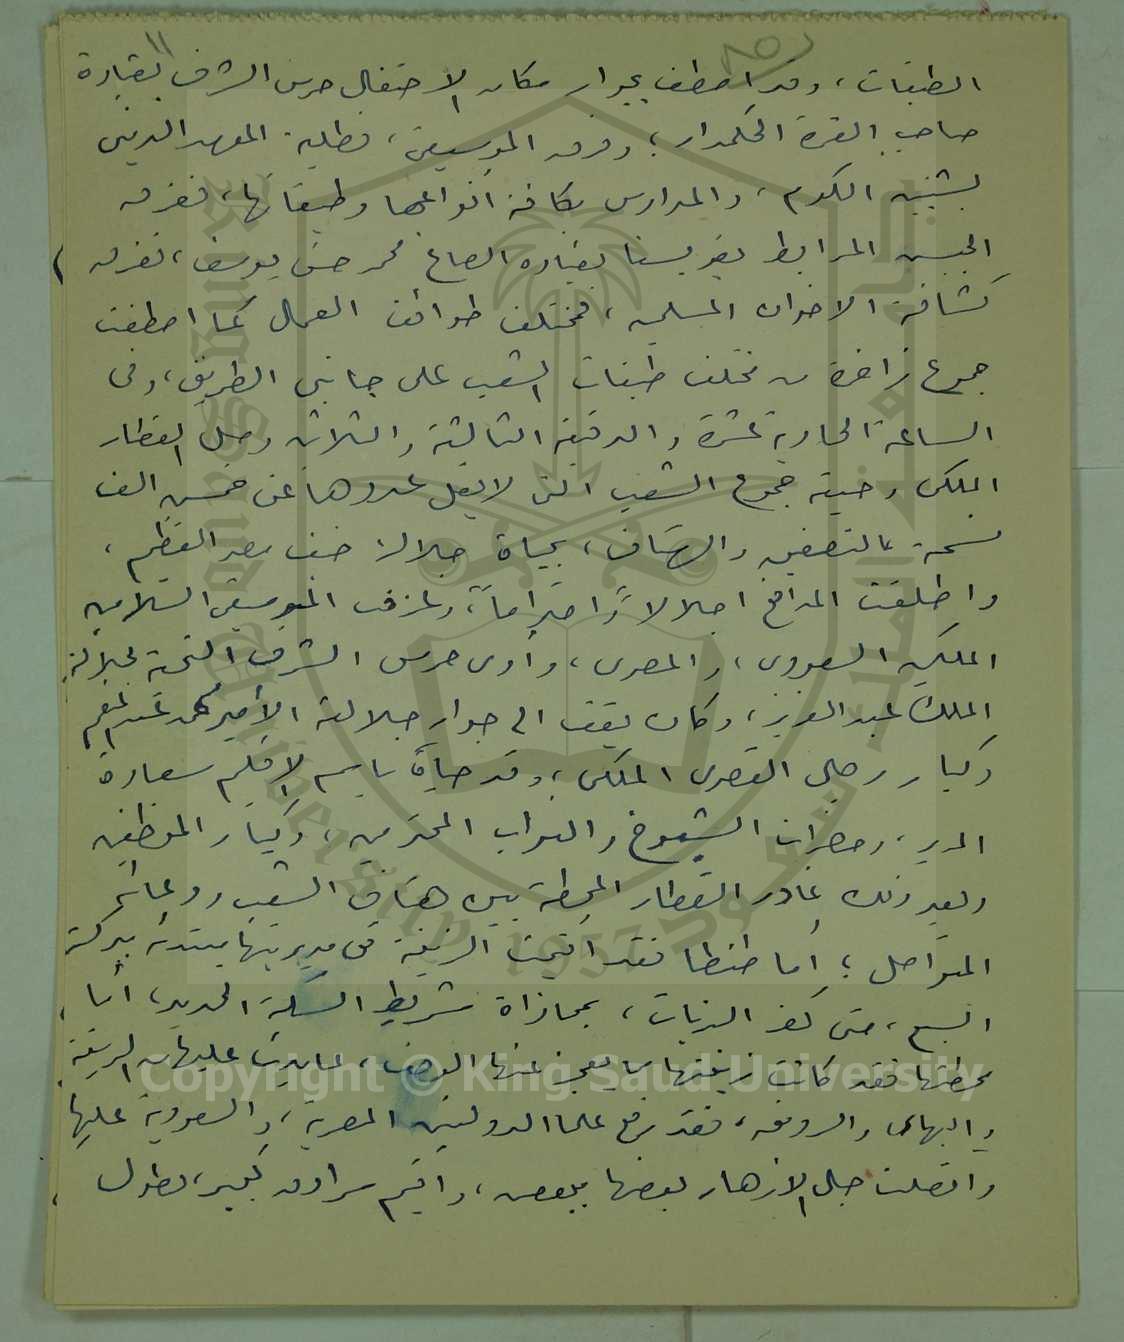 ١١
الطبقات، وقد اصطف بجوار مكان الاحتفال حرس الشرف بقيادة
صاحب العزة الحكمدار، وفرقة الموسيقى، فطلبة المعهد الدينى
بشبين الكوم، والمدارس بكافة أنواعها وطبقاتها، ففرقة
الجيش المرابط بفويسنا بقيادة الصاغ محمد حسن يوسف، ففرقة
كشافة الاخوان المسلمين، فمختلف طوائف العمال كما اصطفت
جموع زاخرة من مختلف طبقات الشعب على جانبى الطريق، وفى
الساعة الحادية عشرة والدقيقة الثالثة والثلاثين وصل القطار
الملكى وحيته جموع الشعب التى لا يقل عددها عن خمسين الف
نسمة بالتصفيق والهتاف، بحياة جلالة ضيف مصر العظيم،
واطلقت المدافع اجلالا واحتراماً، وعزفت الموسيقى السلامين
الملكيين السعودى، والمصرى، وأدى حرس الشرف التحية لجلالة
الملك عبد العزيز، وكان يقف الى جوار جلالته الأمير محمد عبد المنعم
وكبار رجال القصرين الملكى، وقد حياه باسم الاقليم سعادة
المدير، وحضرات الشيوخ والنواب المحترمين، وكبار الموظفين
وبعد ذلك غادر القطار المحطة بين هتاف الشعب ودعائم
المتواصل؛ أما طنطا فقد أقيمت الزينة فى مديريتها مبتدئة ببركة
السبع، حتى كفر الزيات، بمحاذاة شريط السكة الحديد، أما
محطتها فقد كانت زينتها يعجز عنها الوصف، عليها من الزينة
والبهاء والرونق، فقد رفع علما الدولتين المصرية، والسعودية عليها
واتصلت حبال الازهار بعضها ببعض، واقيم سرادق كبير، بطول
Copyright © King Saud University
King Saud University
1957
جامعة الملك سعود